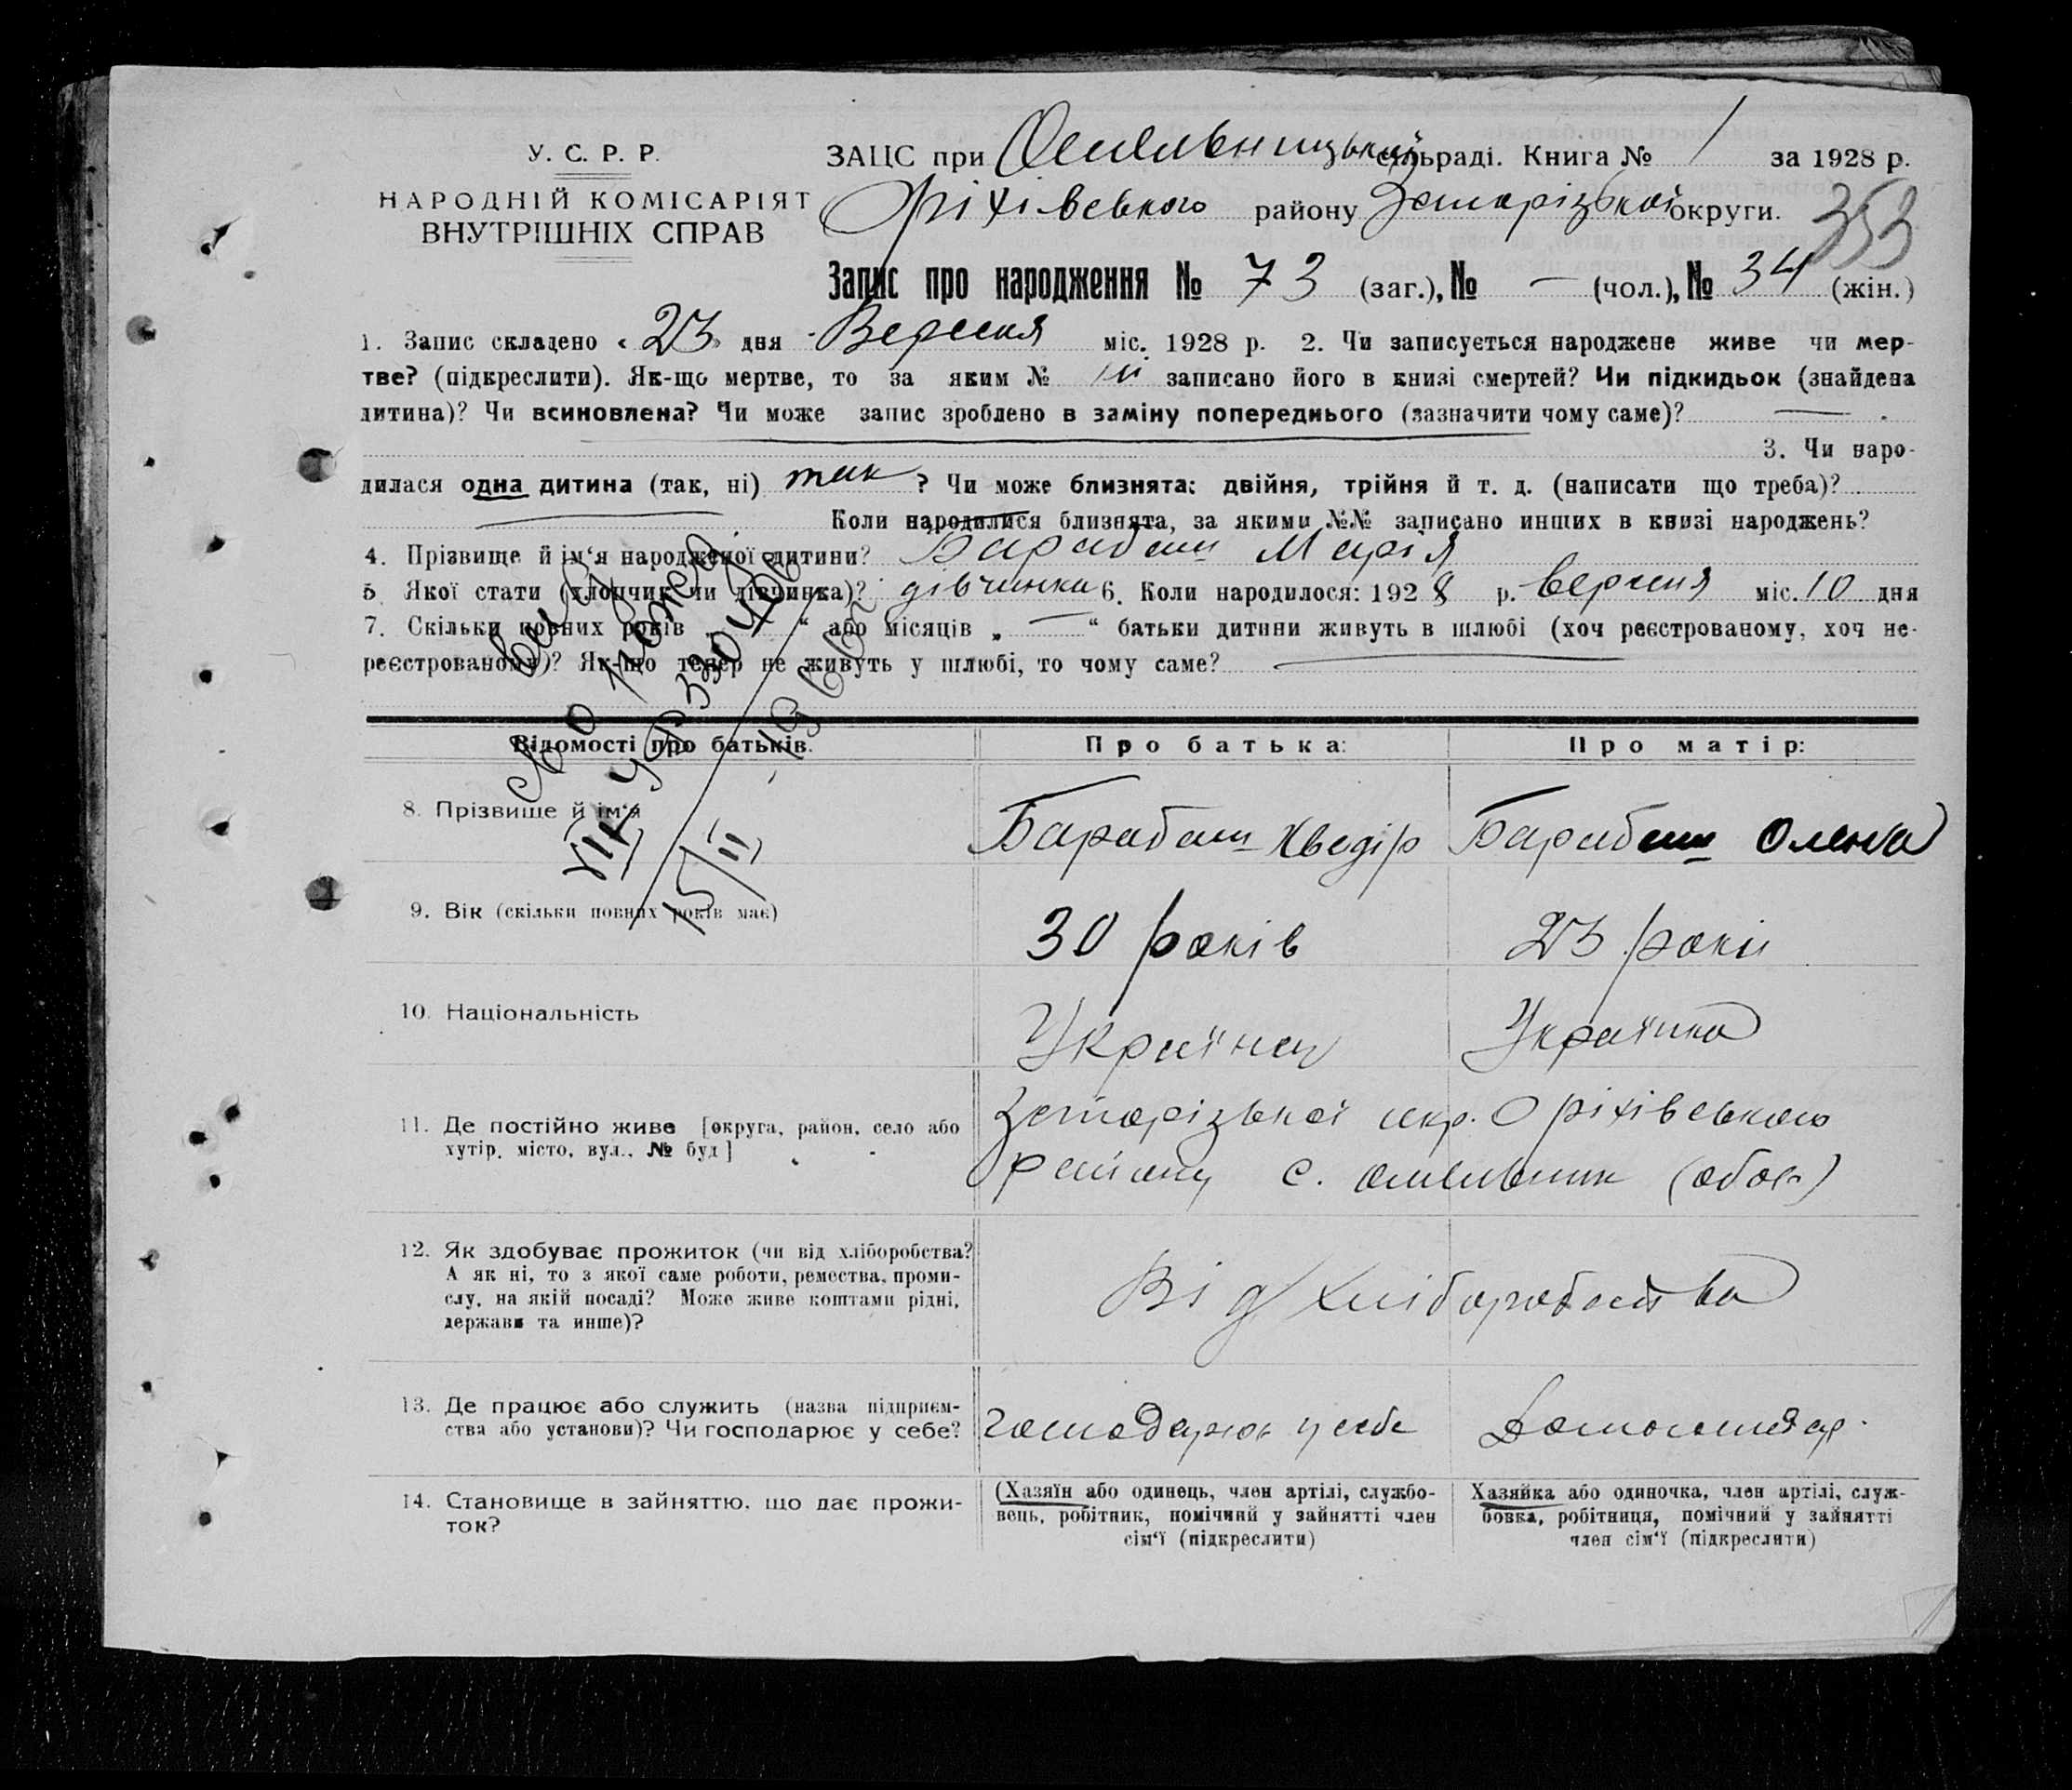 У. С. Р. Р.
НАРОДНІЙ КОМІСАРІЯТ
ВНУТРІШНІХ СПРАВ
ЗАЦС при Омельницькій сільраді. Книга № 1 за 1928 р.
Оріхівського району Запорізької округи.
353
Запис про народження № 73 (заг.), № — (чол.), № 34 (жін.)
1. Запис складено « 23 » дня Вересня міс. 1928 р. 2. Чи записується народжене живе чи мер-
тве? (підкреслити). Як-що мертве, то за яким № записано його в книзі смертей? Чи підкидьок (знайдена
дитина)? Чи всиновлена? Чи може запис зроблено в заміну попереднього (зазначити чому саме)? —
3. Чи наро-
дилася одна дитина (так, ні) так ? Чи може близнята: двійня, трійня й т. д. (написати що треба)?
Коли народилися близнята, за якими №№ записано инших в книзі народжень?
4. Прізвище й ім‘я народженої дитини? Барабаш Марія
5. Якої стати (хлопчик чи дівчинка)? дівчинка 6. Коли народилося: 1928 р. вересня міс. 10 дня
7. Скільки повних років “ або місяців „ — “ батьки дитини живуть в шлюбі (хоч реєстрованому, хоч не-
реєстрованому)? Як-що тепер не живуть у шлюбі, то чому саме? —
Відомості про батьків.
Про батька:
Про матір:
8. Прізвище й ім‘я
Барабаш Хведір
Барабаш Олена
9. Вік (скільки повних років має)
30 років
23 роки
10. Національність
Українец
Українка
11. Де постійно живе [округа, район, село або
хутір, місто, вул., № буд]
Запорізької окр. Оріхівського
району с. Омельник (обоє)
12. Як здобуває прожиток (чи від хліборобства?
А як ні, то з якої саме роботи, ремества, проми-
слу, на якій посаді? Може живе коштами рідні,
держави та инше)?
Від хліборобства
13. Де працює або служить (назва підприєм-
ства або установи)? Чи господарює у себе?
господарює у себе
Домогосподар.
14. Становище в зайняттю, що дає прожи-
ток?
(Хазяїн або одинець, член артілі, службо-
вець, робітник, помічний у зайнятті член
сім‘ї (підкреслити)
Хазяйка або одиночка, член артілі, служ-
бовка, робітниця, помічний у зайнятті
член сім‘ї (підкреслити)